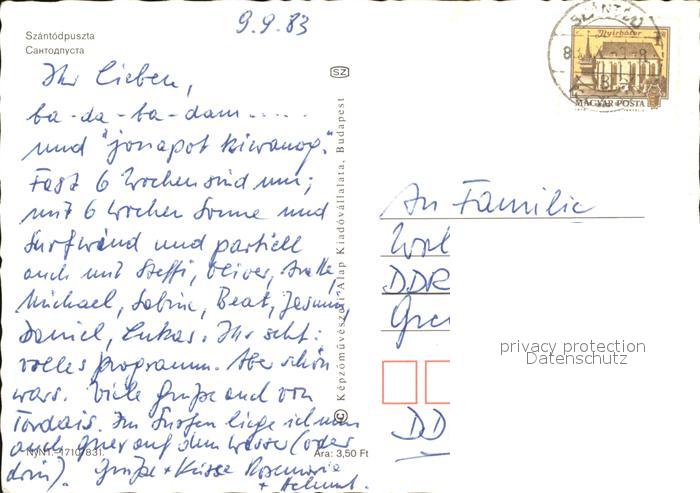 Szántódpuszta
Сантодпуста
9.9.83
Ihr Lieben,
ba-da-ba-dam.....
und "jonapot kiwanog."
Fast 6 Wochen sind um;
mit 6 Wochen Sonne und
Surfwind und partiell
auch mit Steffi, Oliver,
Michael, Sabine, Beat,
Daniel, Lukas. Ihr seht:
volles Programm. Aber schön
wars. Viele Grüße auch von
Tordais. Im Surfen liege ich nun
auch quer auf dem Wasser (oder
drin). Grüße + Küsse Rosemarie
+ Helmut.
NyNT. 1710/831.
Ára: 3,50 Ft
SZ
© Képzőművészeti Alap Kiadóvállalata, Budapest
SZÁNTÓD
Nyírbátor
MAGYAR POSTA
An Familie
DDR
DD
privacy protection
Datenschutz